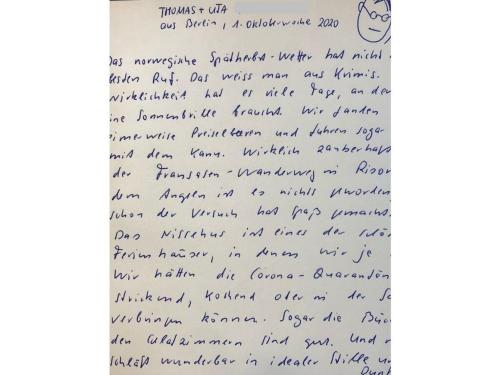 THOMAS + UTA
aus Berlin, 1. Oktoberwoche 2020
Das norwegische Spätherbst-Wetter hat nicht
besten Ruf. Das weiss man aus Krimis.
Wirklichkeit hat es viele Tage, an der
ine Sonnenbrille braucht. Wir fanden
eimerweise Preiselbeeren und fuhren sogar
mit dem Kanu. Wirklich zauberhaft
der Fransosen-Wanderweg in Risør
dem Angeln ist es nichts geworden
schon der Versuch hat Spaß gemacht.
Das Nissehus ist eines der schön
Ferienhäuser, in denen wir je
Wir hätten die Corona-Quarantän
strickend, kochend oder in der Sa
verbringen können. Sogar die Büc
den Gästzimmern sind gut. Und
schläft wunderbar in idealer Stille und
Dunk